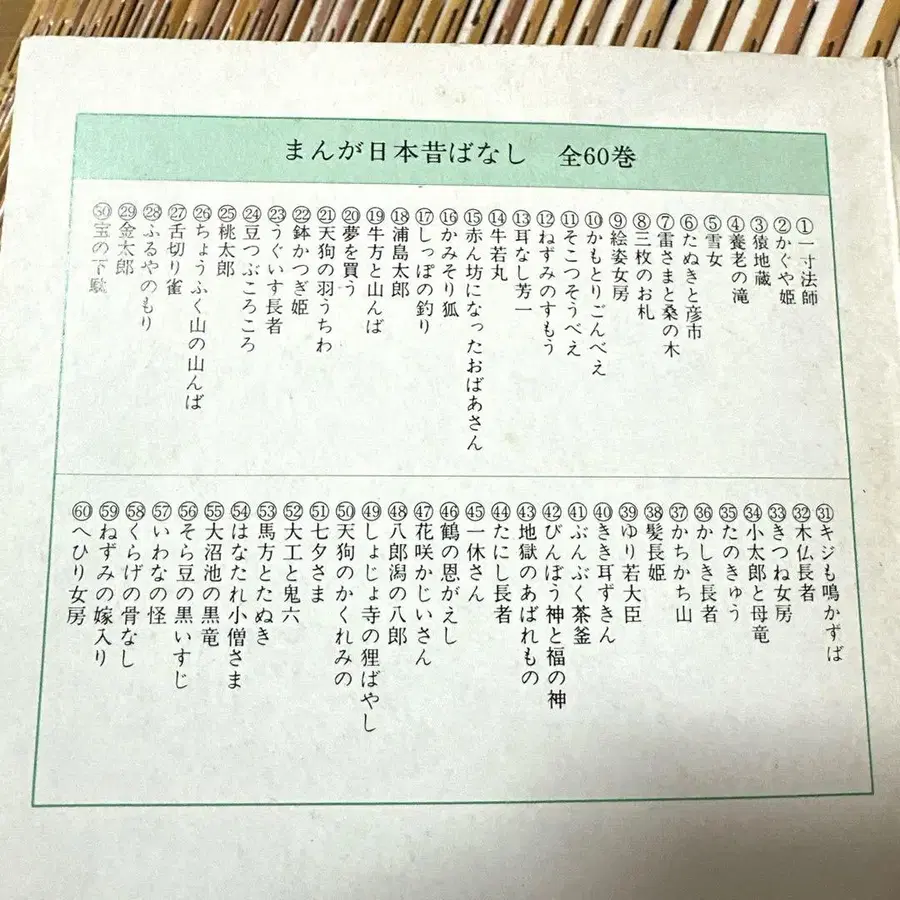 まんが日本昔ばなし　全60巻
①一寸法師
②かぐや姫
③猿地蔵
④養老の滝
⑤雪女
⑥たぬきと彦市
⑦雷さまと桑の木
⑧三枚のお札
⑨絵姿女房
⑩かもとりごんべえ
⑪そこつそうべえ
⑫ねずみのすもう
⑬耳なし芳一
⑭牛若丸
⑮赤ん坊になったおばあさん
⑯かみそり狐
⑰しっぽの釣り
⑱浦島太郎
⑲牛方と山んば
⑳夢を買う
㉑天狗の羽うちわ
㉒鉢かつぎ姫
㉓うぐいす長者
㉔豆つぶころころ
㉕桃太郎
㉖ちょうふく山の山んば
㉗舌切り雀
㉘ふるやのもり
㉙金太郎
㉚宝の下駄
㉛キジも鳴かずば
㉜木仏長者
㉝きつね女房
㉞小太郎と母竜
㉟たのきゅう
㊱かしき長者
㊲かちかち山
㊳髪長姫
㊴ゆり若大臣
㊵きき耳ずきん
㊶ぶんぶく茶釜
㊷びんぼう神と福の神
㊸地獄のあばれもの
㊹たにし長者
㊺一休さん
㊻鶴の恩がえし
㊼花咲かじいさん
㊽八郎潟の八郎
㊾しょじょ寺の狸ばやし
㊿天狗のかくれみの
51七夕さま
52大工と鬼六
53馬方とたぬき
54はなたれ小僧さま
55大沼池の黒竜
56そら豆の黒いすじ
57いわなの怪
58くらげの骨なし
59ねずみの嫁入り
60へひり女房